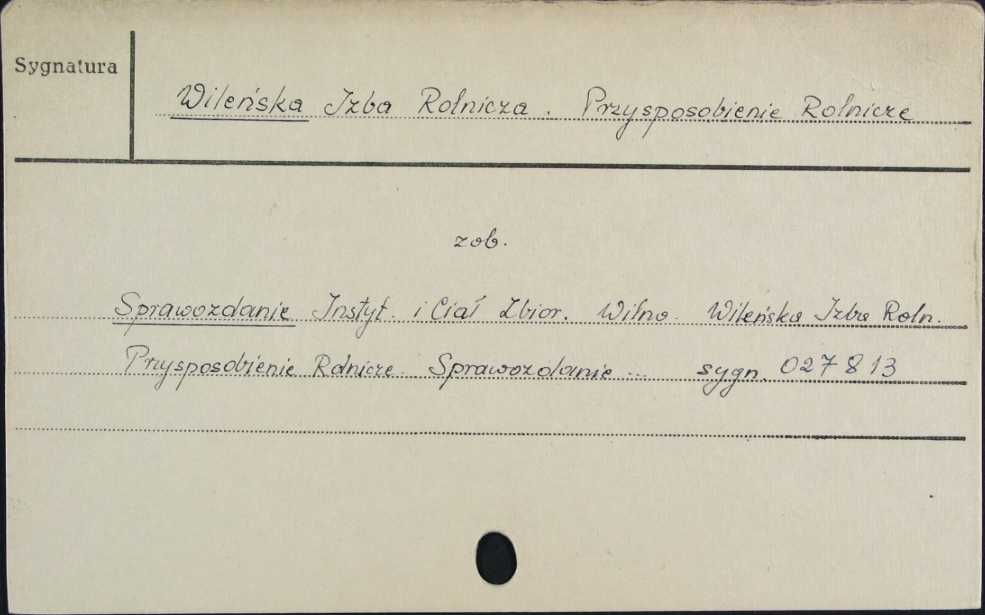 Sygnatura
Wileńska Izba Rolnicza. Przysposobienie Rolnicze
zob.
Sprawozdanie Instyt. i Ciał Zbior. Wilno. Wileńska Izba Roln.
Przysposobienie Rolnicze. Sprawozdanie ... sygn. 027813